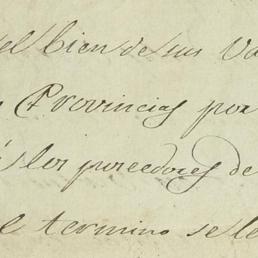 el bien de sus Va
Provincias por
los poseedores de
el termino se le